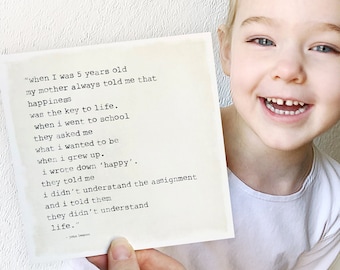 "when I was 5 years old
my mother always told me that
happiness
was the key to life.
when i went to school
they asked me
what i wanted to be
when i grew up.
i wrote down 'happy'.
they told me
i didn't understand the assignment
and i told them
they didn't understand
life."